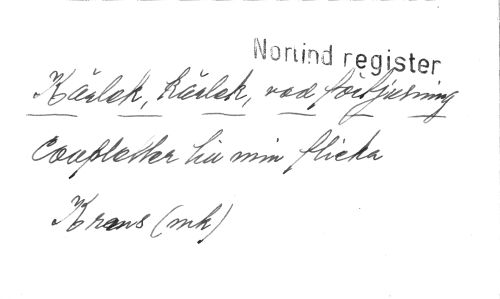 Norlind register
Kärlek, kärlek, vad förtjusning
Coupletter till min flicka
Krans (mk)